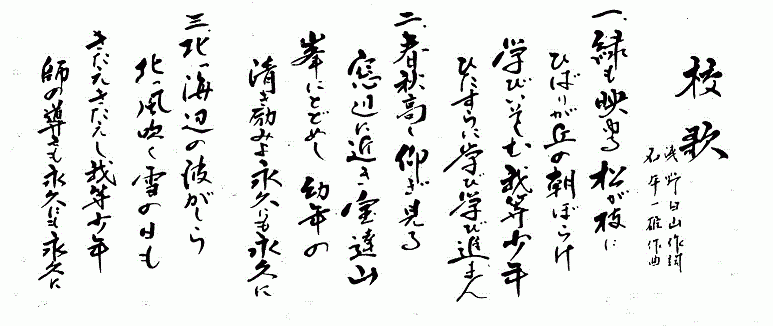 校歌
浅野白山作詞
石年一雄作曲
一、緑も映ゆる松が枝に
ひばりが丘の朝ぼらけ
学びいそしむ我等少年
ひたすらに学び学び進まん
二、春秋高く仰ぎ見る
窓辺に近き金達山
峯にとどめし幼年の
清き励みよ永久にも永久に
三、北の海辺の波がしら
北の風吹く雪の日も
きたえきたえし我等少年
師の導きも永久にも永久に